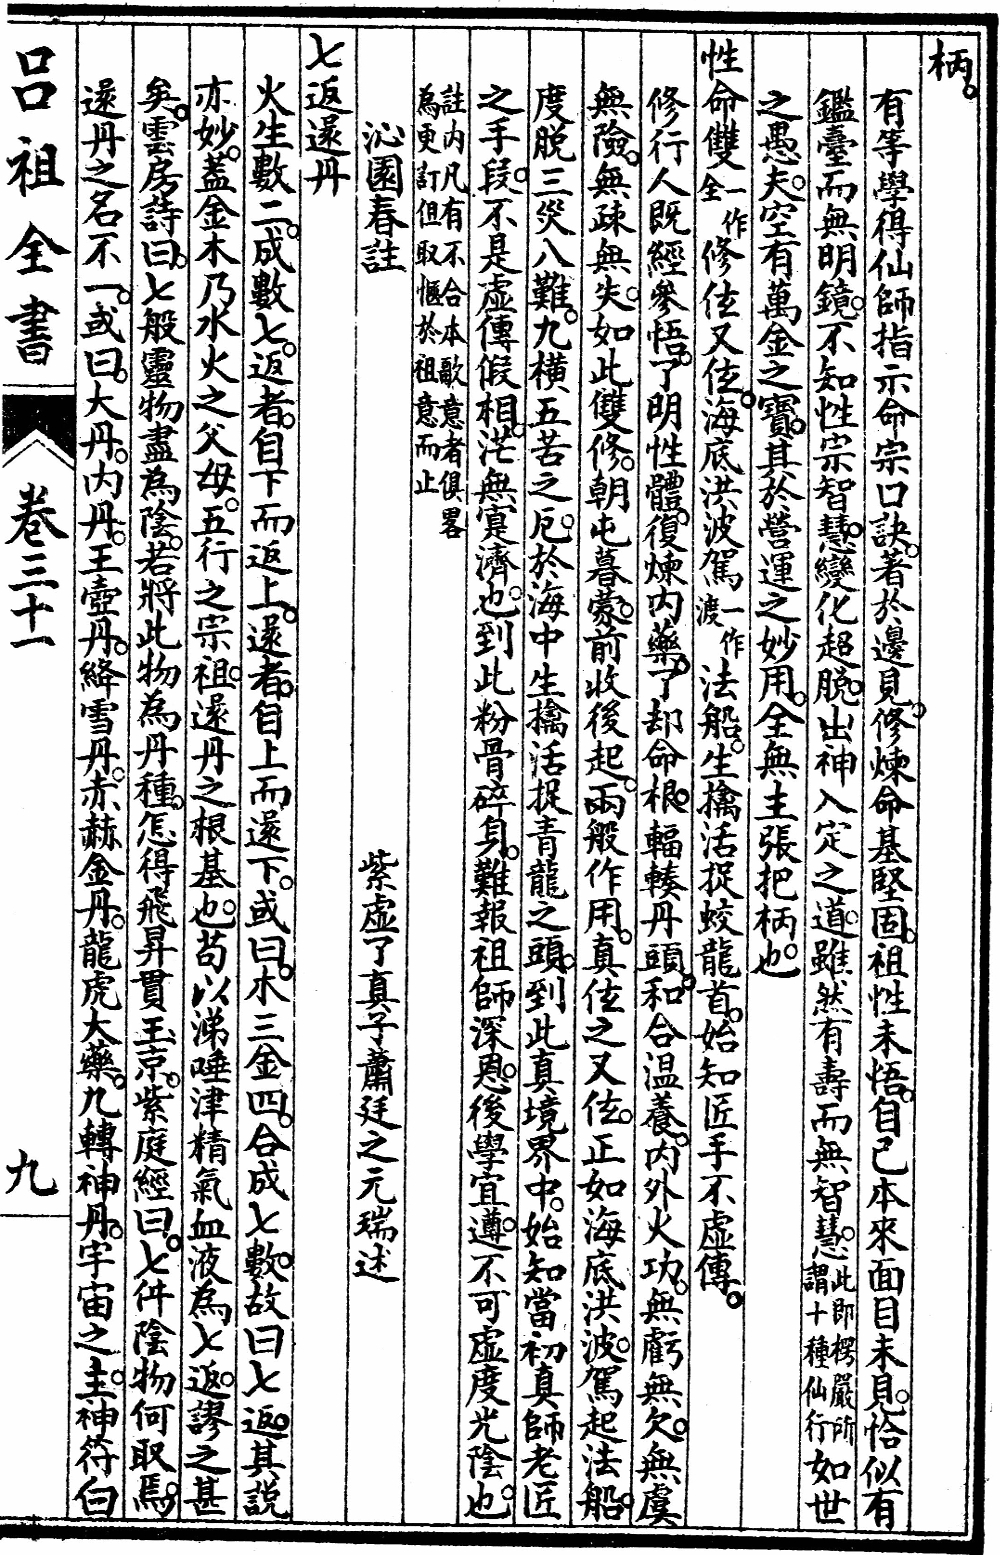 柄。
有等學得仙師指示命宗口訣。著於邊見。修煉命基堅固。祖性未悟。自己本來面目未見。恰似有
鑑臺而無明鏡。不知性宗智慧。變化超脫。出神入定之道。雖然有壽而無智慧。此即楞嚴所謂十種仙行如世
之愚夫。空有萬金之寶。其於營運之妙用。全無主張把柄也。
性命雙一作全修伭又伭。海底洪波駕一作渡法船。生擒活捉蛟龍首。始知匠手不虛傳。
修行人既經參悟。了明性體。復煉內藥。了却命根。輻輳丹頭。和合温養。內外火功。無虧無欠。無虞
無險。無疎無失。如此雙修。朝屯暮蒙。前收後起。兩般作用。真伭之又伭。正如海底洪波。駕起法船。
度脫三災八難。九橫五苦之厄。於海中生擒活捉青龍之頭。到此真境界中。始知當初真師老匠
之手段。不是虛傳假相。茫無寔濟也。到此粉骨碎身。難報祖師深恩。後學宜遵。不可虛度光陰也。
註內凡有不合本歌意者俱畧
為更訂但取愜於祖意而止
沁園春註
紫虛了真子蕭廷之元瑞述
七返還丹
火生數二。成數七。返者。自下而返上。還者。自上而還下。或曰。木三金四。合成七數。故曰七返。其説
亦妙。蓋金木乃水火之父母。五行之宗祖。還丹之根基也。苟以涕唾津精氣血液為七返。謬之甚
矣。雲房詩曰。七般靈物盡為陰。若將此物為丹種。怎得飛昇貫玉京。紫庭經曰。七件陰物何取焉。
還丹之名不一。或曰。大丹。內丹。玉壺丹。絳雪丹。赤赫金丹。龍虎大藥。九轉神丹。宇宙之主。神符白
呂祖全書
卷三十一
九